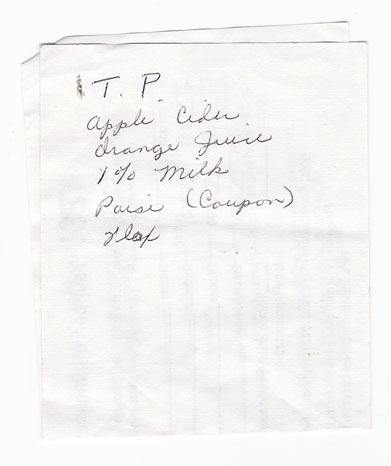 T. P.
Apple Cider
Orange Juice
1% Milk
Poise (Coupon)
Flax